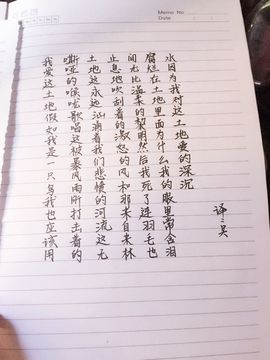 Memo No.
Date / /
我爱这土地假如我是一只鸟我也应该用
嘶哑的喉咙歌唱这被暴风雨所打击着的
土地这永远汹涌着我们悲愤的河流这无
止息地吹刮着的激怒的风和那来自林
间无比温柔的黎明然后我死了连羽毛也
腐烂在土地里面为什么我的眼里常含泪
水因为我对这土地爱的深沉